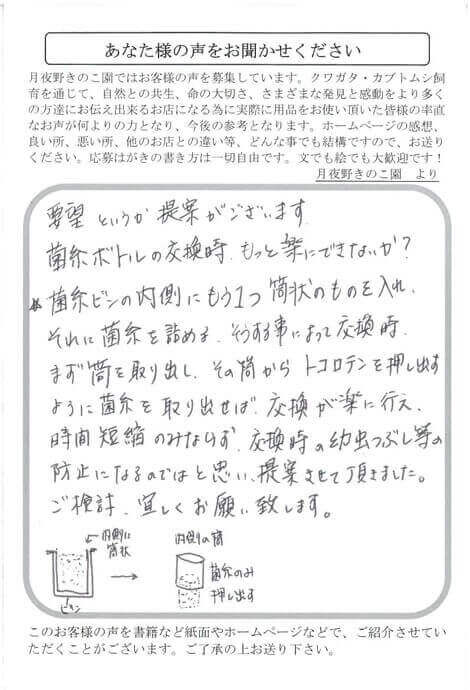 あなた様の声をお聞かせください
月夜野きのこ園ではお客様の声を募集しています。クワガタ・カブトムシ飼
育を通じて、自然との共生、命の大切さ、さまざまな発見と感動をより多く
の方達にお伝え出来るお店になる為に実際に用品をお使い頂いた皆様の率直
なお声が何よりの力となり、今後の参考となります。ホームページの感想、
良い所、悪い所、他のお店との違い等、どんな事でも結構ですので、お送り
ください。応募はがきの書き方は一切自由です。文でも絵でも大歓迎です！
月夜野きのこ園　より
要望というか提案がございます
菌糸ボトルの交換時、もっと楽にできないか？
菌糸ビンの内側にもう1つ筒状のものを入れ、
それに菌糸を詰める。そうする事によって交換時、
まず筒を取り出し、その筒からトコロテンを押し出す
ように菌糸を取り出せば、交換が楽に行え、
時間短縮のみならず、交換時の幼虫つぶし等の
防止になるのではと思い、提案させて頂きました。
ご検討、宜しくお願い致します。
内側に
筒状
ビン
内側の筒
菌糸のみ
押し出す
このお客様の声を書籍など紙面やホームページなどで、ご紹介させてい
ただくことがございます。ご了承の上お送り下さい。